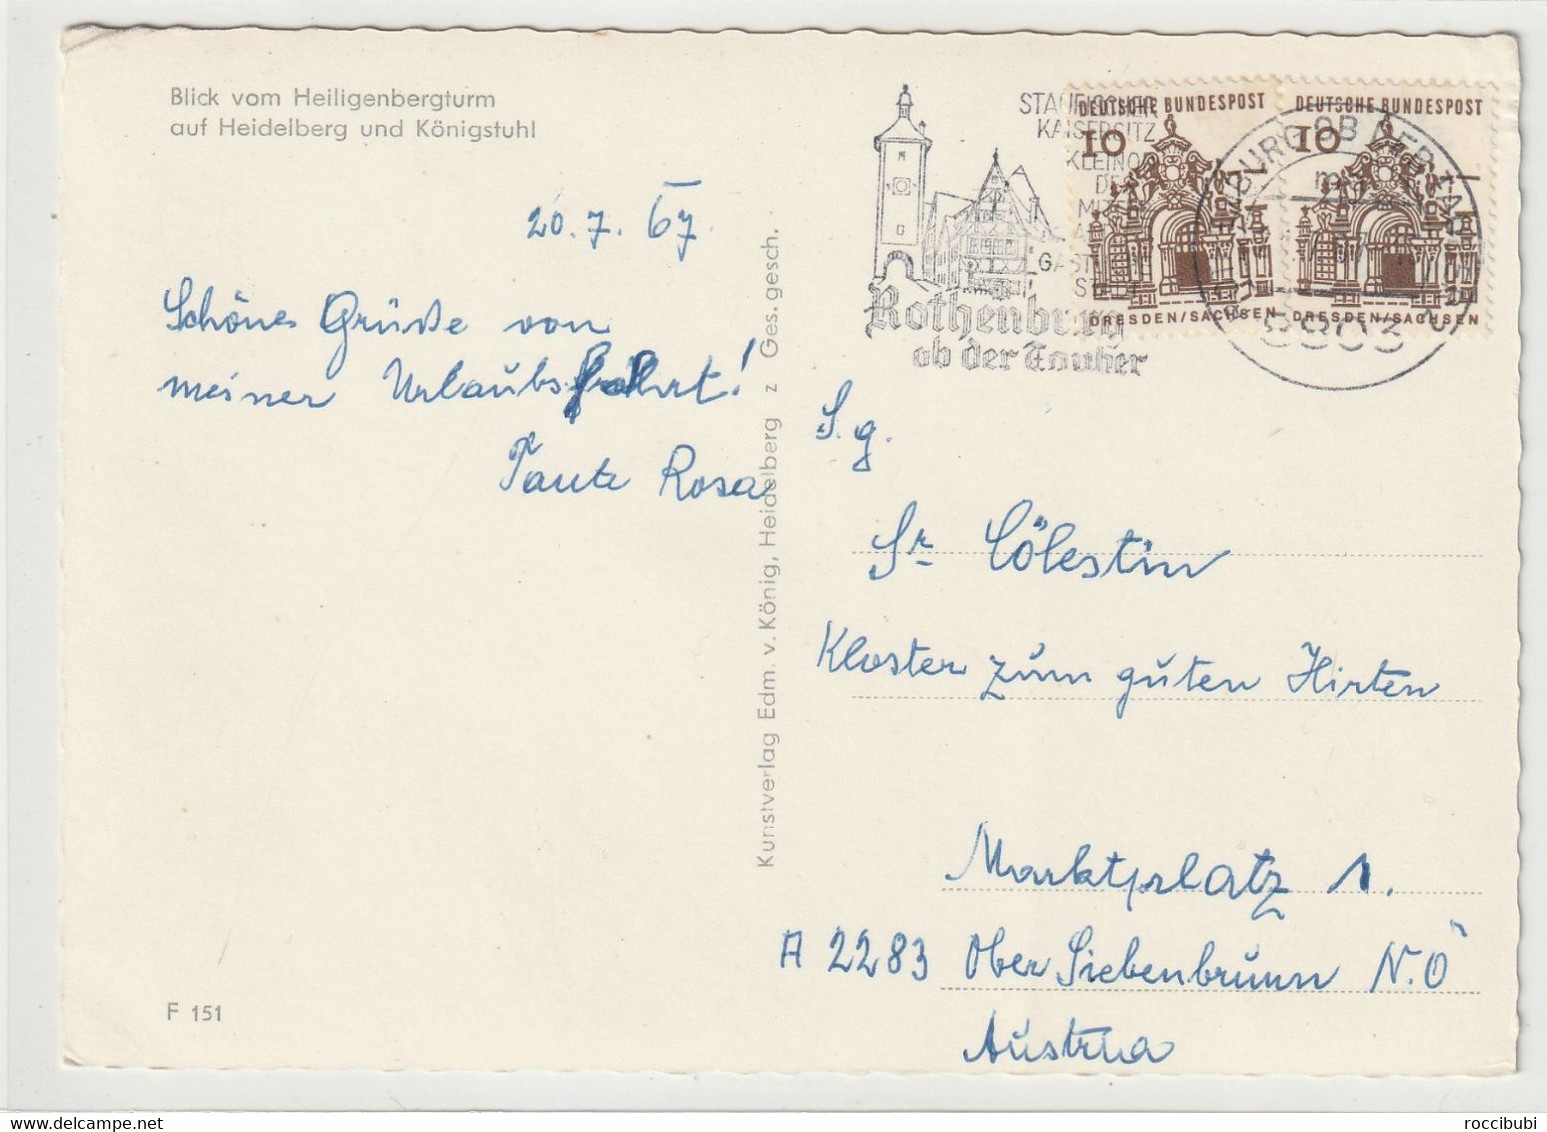 Blick vom Heiligenbergturm
auf Heidelberg und Königstuhl
20.7.67
Schöne Grüße von
meiner Urlaubsfahrt!
Tante Rosa
F 151
Kunstverlag Edm. v. König, Heidelberg z Ges. gesch.
STAUFISCHER
KAISERSITZ
KLEINOD
DES
GAST
STADT
Rothenburg
ob der Tauber
DEUTSCHE BUNDESPOST
10
DRESDEN/SACHSEN
DEUTSCHE BUNDESPOST
10
DRESDEN/SACHSEN
BURG OB DER TAUBER
8803
S. g.
Sr. Cölestin
Kloster zum guten Hirten
Marktplatz 1.
A 2283 Ober Siebenbrunn N.Ö
Austria
roccibubi